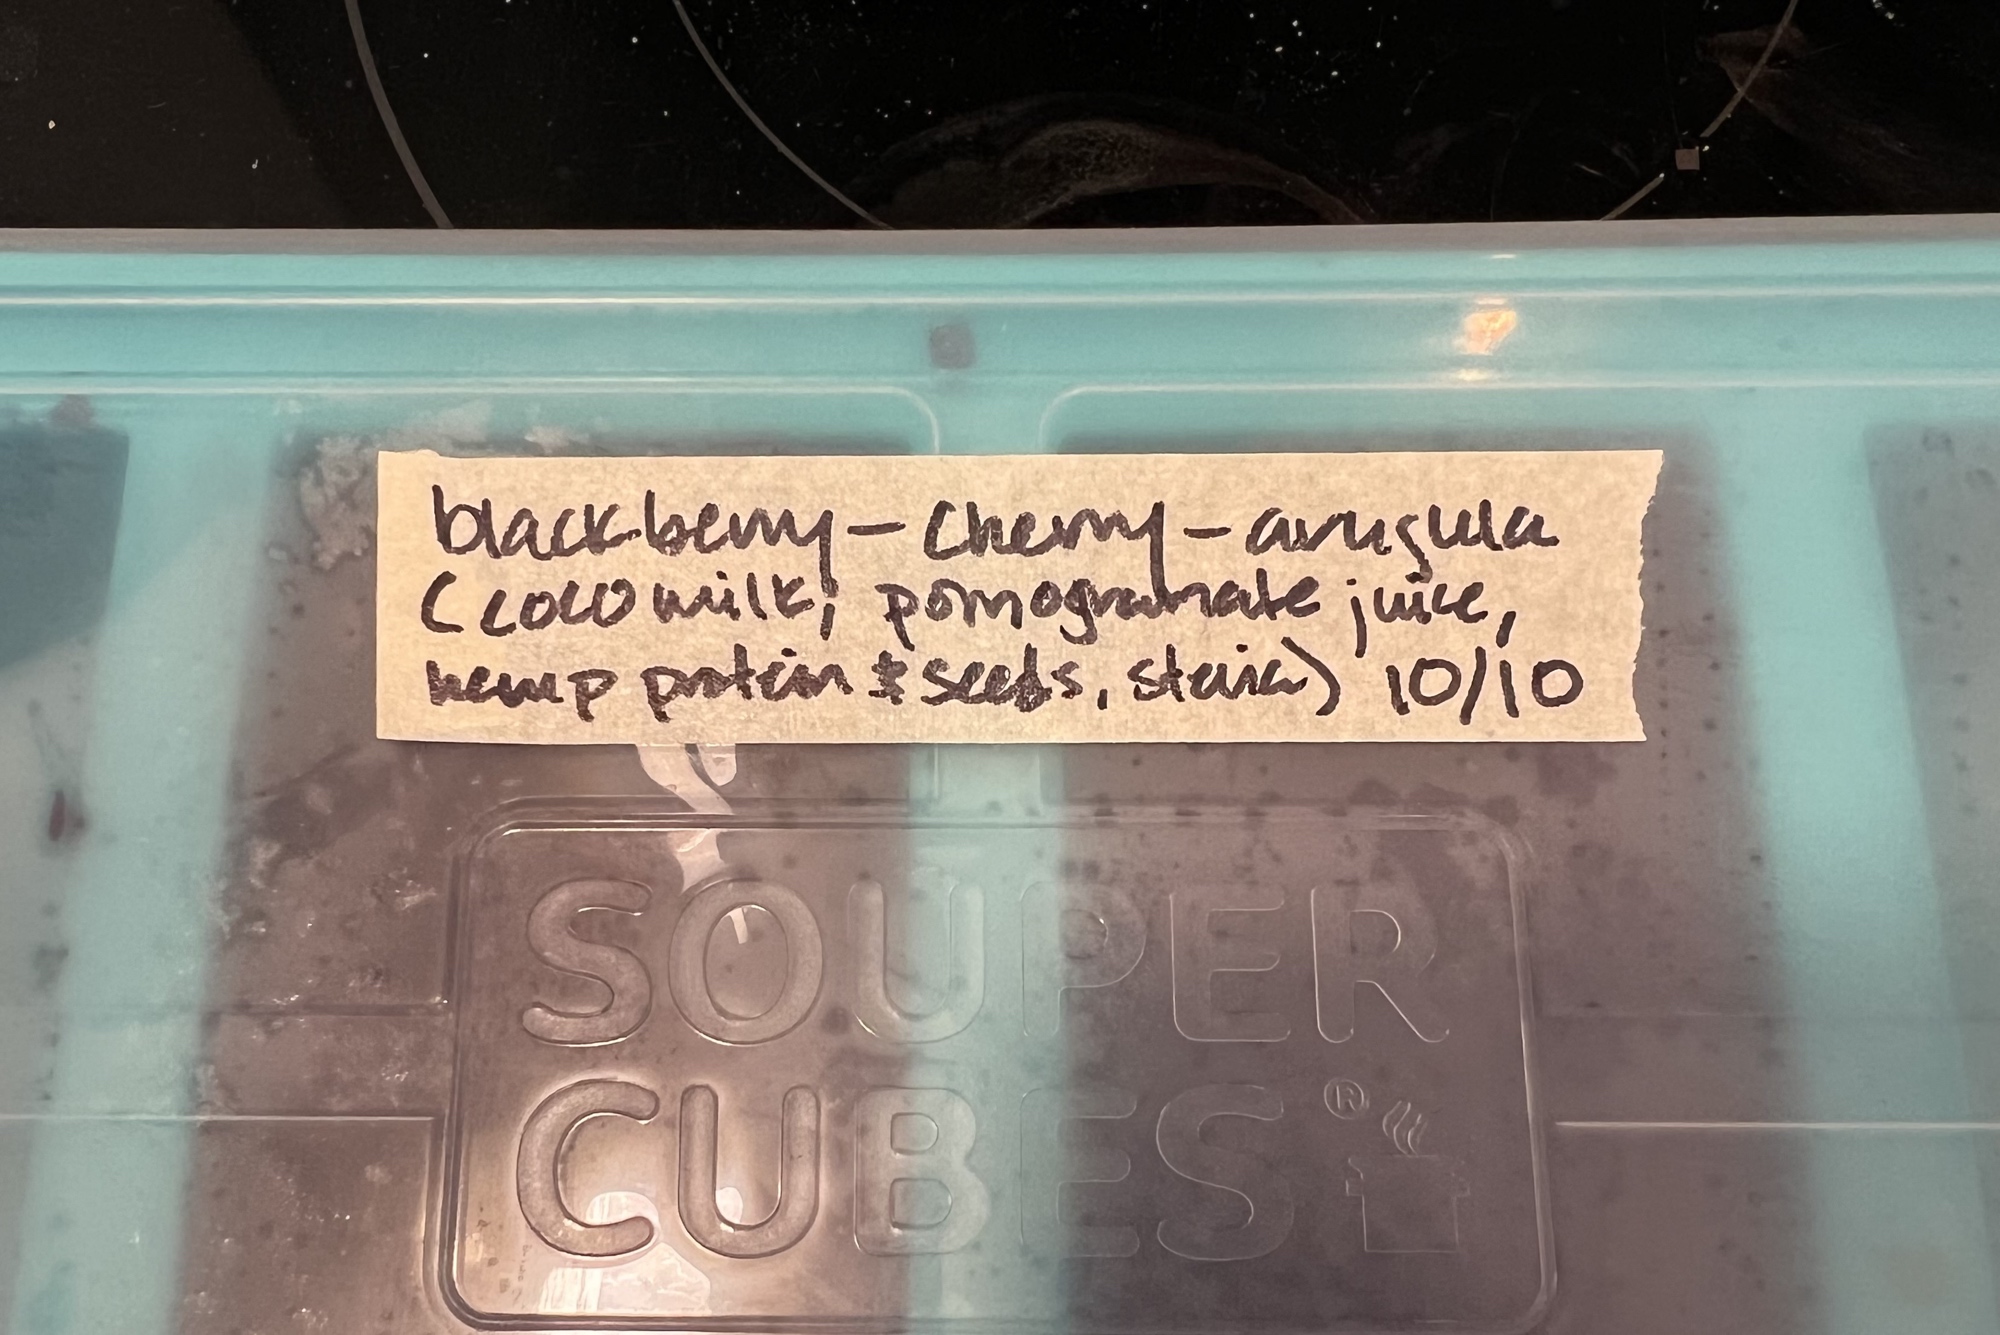 blackberry - cherry - arugula
(coco milk, pomogranate juice,
hemp protein & seeds, stevia) 10/10
SOUPER
CUBES®